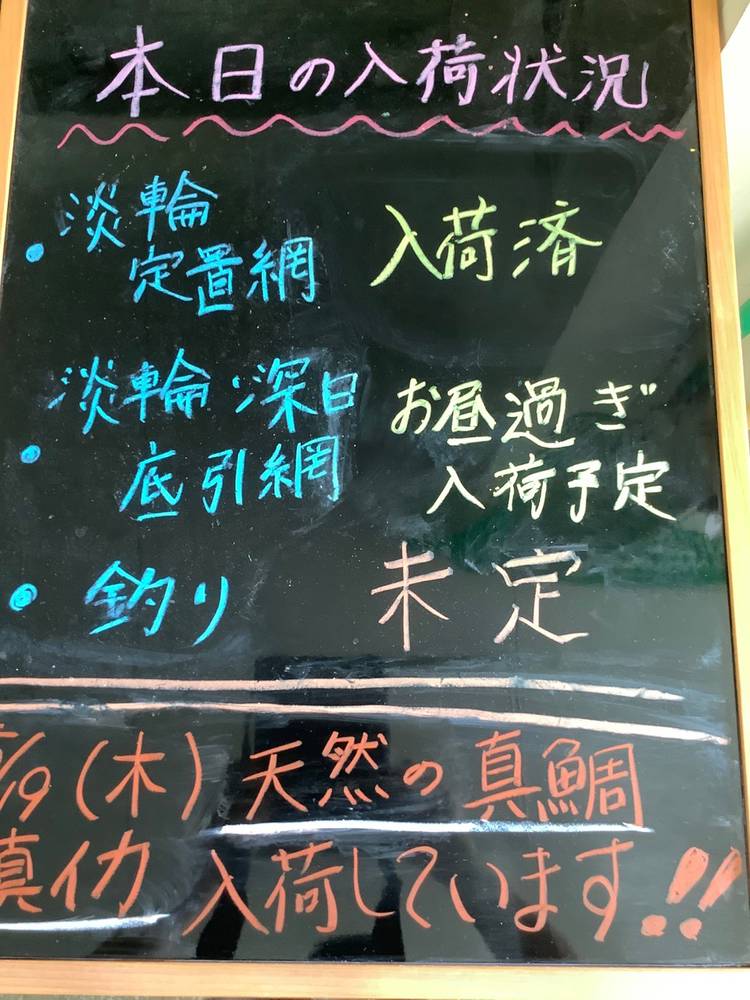 本日の入荷状況
・淡輪
定置網
入荷済
・淡輪・深日
底引網
お昼過ぎ
入荷予定
・釣り
未定
/19(木)天然の真鯛
真イカ 入荷しています!!